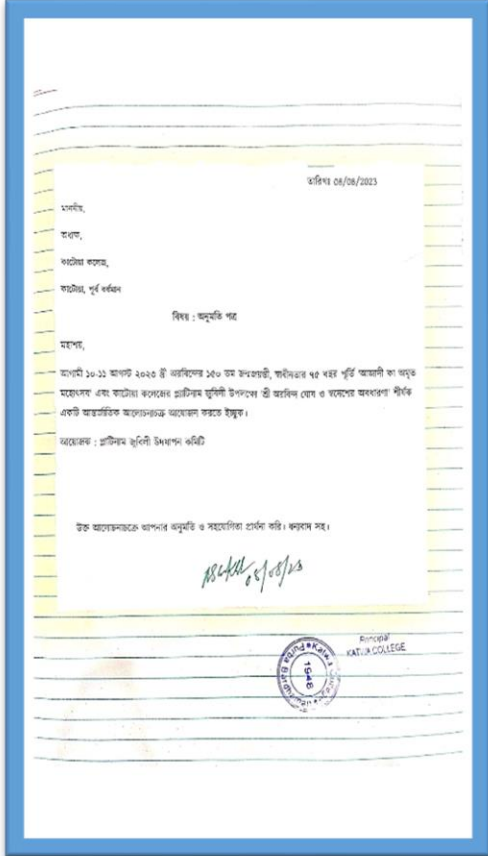 তারিখঃ 08/08/2023
মাননীয়,
অধ্যক্ষ,
কাটোয়া কলেজ,
কাটোয়া, পূর্ব বর্ধমান
বিষয় : অনুমতি পত্র
মহাশয়,
আগামী ১০-১১ আগস্ট ২০২৩ শ্রী অরবিন্দের ১৫০ তম জন্মজয়ন্তী, স্বাধীনতার ৭৫ বছর পূর্তি 'আজাদী কা অমৃত
মহোৎসব' এবং কাটোয়া কলেজের প্ল্যাটিনাম জুবিলী উপলক্ষ্যে 'শ্রী অরবিন্দ ঘোষ ও স্বদেশের অবধারণা' শীর্ষক
একটি আন্তর্জাতিক আলোচনাচক্র আয়োজন করতে ইচ্ছুক।
আয়োজক : প্লাটিনাম জুবিলী উদযাপন কমিটি
উক্ত আলোচনাচক্রে আপনার অনুমতি ও সহযোগিতা প্রার্থনা করি। ধন্যবাদ সহ।
08/08/23
Principal
KATWA COLLEGE
Katwa College
Purba Bardhaman
1948